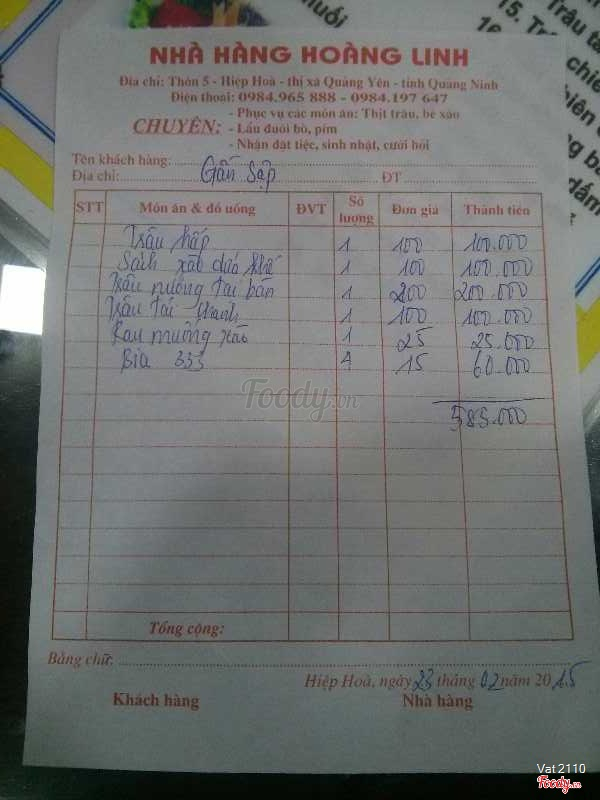 NHÀ HÀNG HOÀNG LINH
Địa chỉ: Thôn 5 - Hiệp Hoà - thị xã Quảng Yên - tỉnh Quảng Ninh
Điện thoại: 0984.965 888 - 0984.197 647
CHUYÊN:
- Phục vụ các món ăn: Thịt trâu, bê xào
- Lẩu đuôi bò, pím
- Nhận đặt tiệc, sinh nhật, cưới hỏi
Tên khách hàng:
Địa chỉ: Gần Sập ĐT
STT Món ăn & đồ uống ĐVT Số lượng Đơn giá Thành tiền
Trâu hấp 1 100 100.000
Sách xào dưa khế 1 100 100.000
Trâu nướng tại bàn 1 200 200.000
Trâu tái chanh 1 100 100.000
Rau muống xào 1 25 25.000
Bia 333 4 15 60.000
585.000
Foody.vn
Tổng cộng:
Bằng chữ:
Hiệp Hoà, ngày 23 tháng 02 năm 2015
Khách hàng Nhà hàng
uối
15. Trâu tá
chiê
Vat2110
Foody.vn